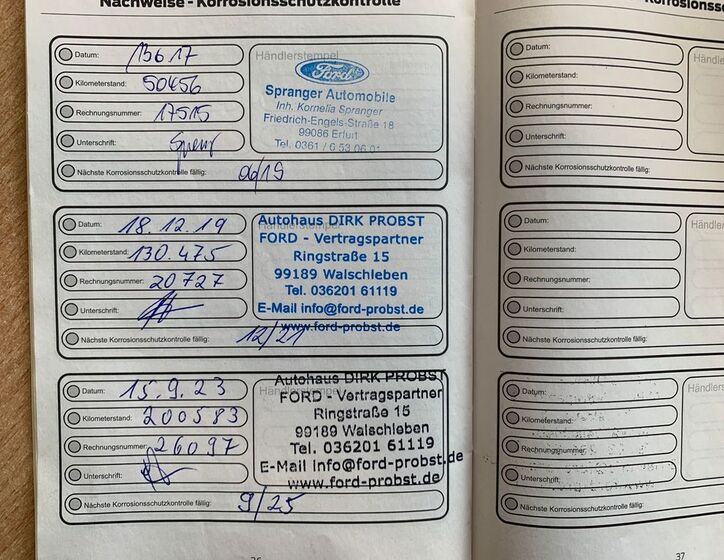 Nachweise - Korrosionsschutzkontrolle
Datum: 13 6 17
Kilometerstand: 50456
Rechnungsnummer: 17515
Unterschrift:
Nächste Korrosionsschutzkontrolle fällig: 06/19
Händlerstempel
Ford
Spranger Automobile
Inh. Kornelia Spranger
Friedrich-Engels-Straße 18
99086 Erfurt
Tel. 0361 / 6 53 06 01
Datum: 18.12.19
Kilometerstand: 130.475
Rechnungsnummer: 20727
Unterschrift:
Nächste Korrosionsschutzkontrolle fällig: 12/21
Händlerstempel
Autohaus DIRK PROBST
FORD - Vertragspartner
Ringstraße 15
99189 Walschleben
Tel. 036201 61119
E-Mail info@ford-probst.de
www.ford-probst.de
Datum: 15.9.23
Kilometerstand: 200583
Rechnungsnummer: 26097
Unterschrift:
Nächste Korrosionsschutzkontrolle fällig: 9/25
Händlerstempel
Autohaus DIRK PROBST
FORD - Vertragspartner
Ringstraße 15
99189 Walschleben
Tel. 036201 61119
E-Mail info@ford-probst.de
www.ford-probst.de
Datum:
Kilometerstand:
Rechnungsnummer:
Unterschrift:
Nächste Korrosionsschutzkontrolle fällig:
Datum:
Kilometerstand:
Rechnungsnummer:
Unterschrift:
Nächste Korrosionsschutzkontrolle fällig:
Datum:
Kilometerstand:
Rechnungsnummer:
Unterschrift:
Nächste Korrosionsschutzkontrolle fällig:
37